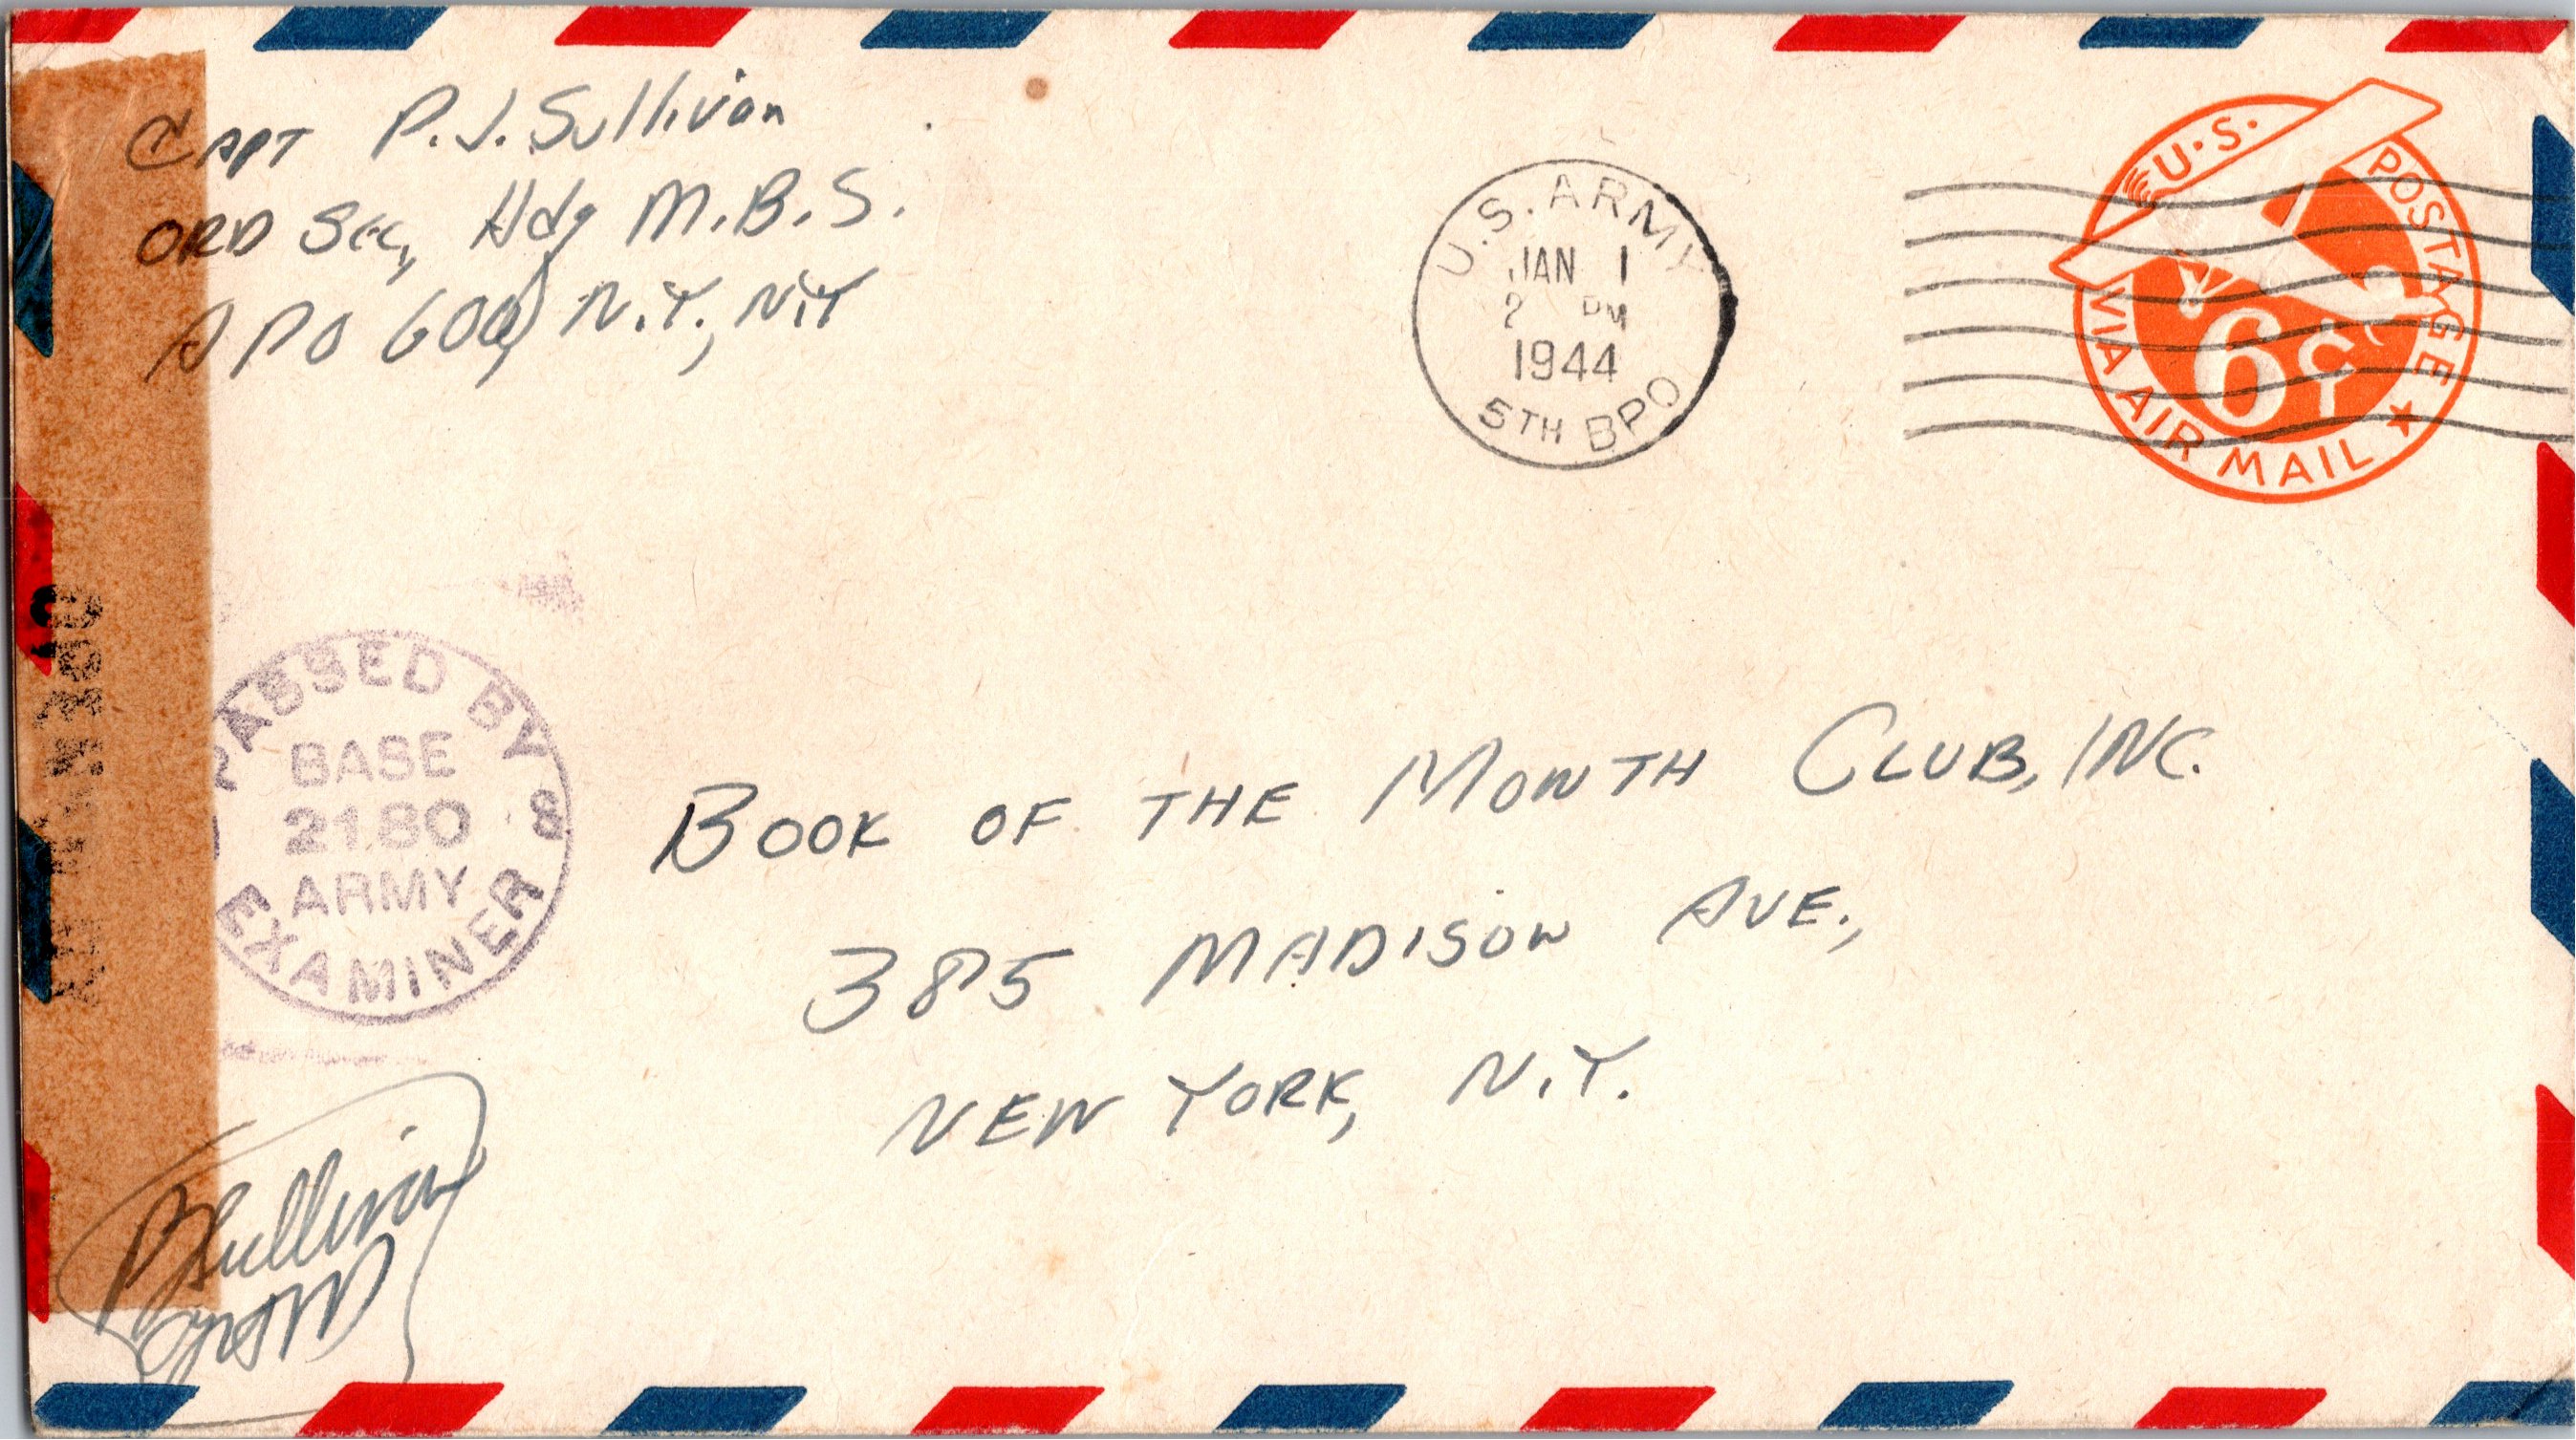 Capt P.J. Sullivan
ORD Sec, Hdq M.B.S.
APO 600, N.Y., N.Y
U.S. ARMY
JAN 1
2 PM
1944
5TH BPO
U.S. POSTAGE
6¢
VIA AIR MAIL
PASSED BY
BASE
2180
ARMY
EXAMINER
BOOK OF THE MONTH CLUB, INC.
385 MADISON AVE.,
NEW YORK, N.Y.
PJSullivan
Capt